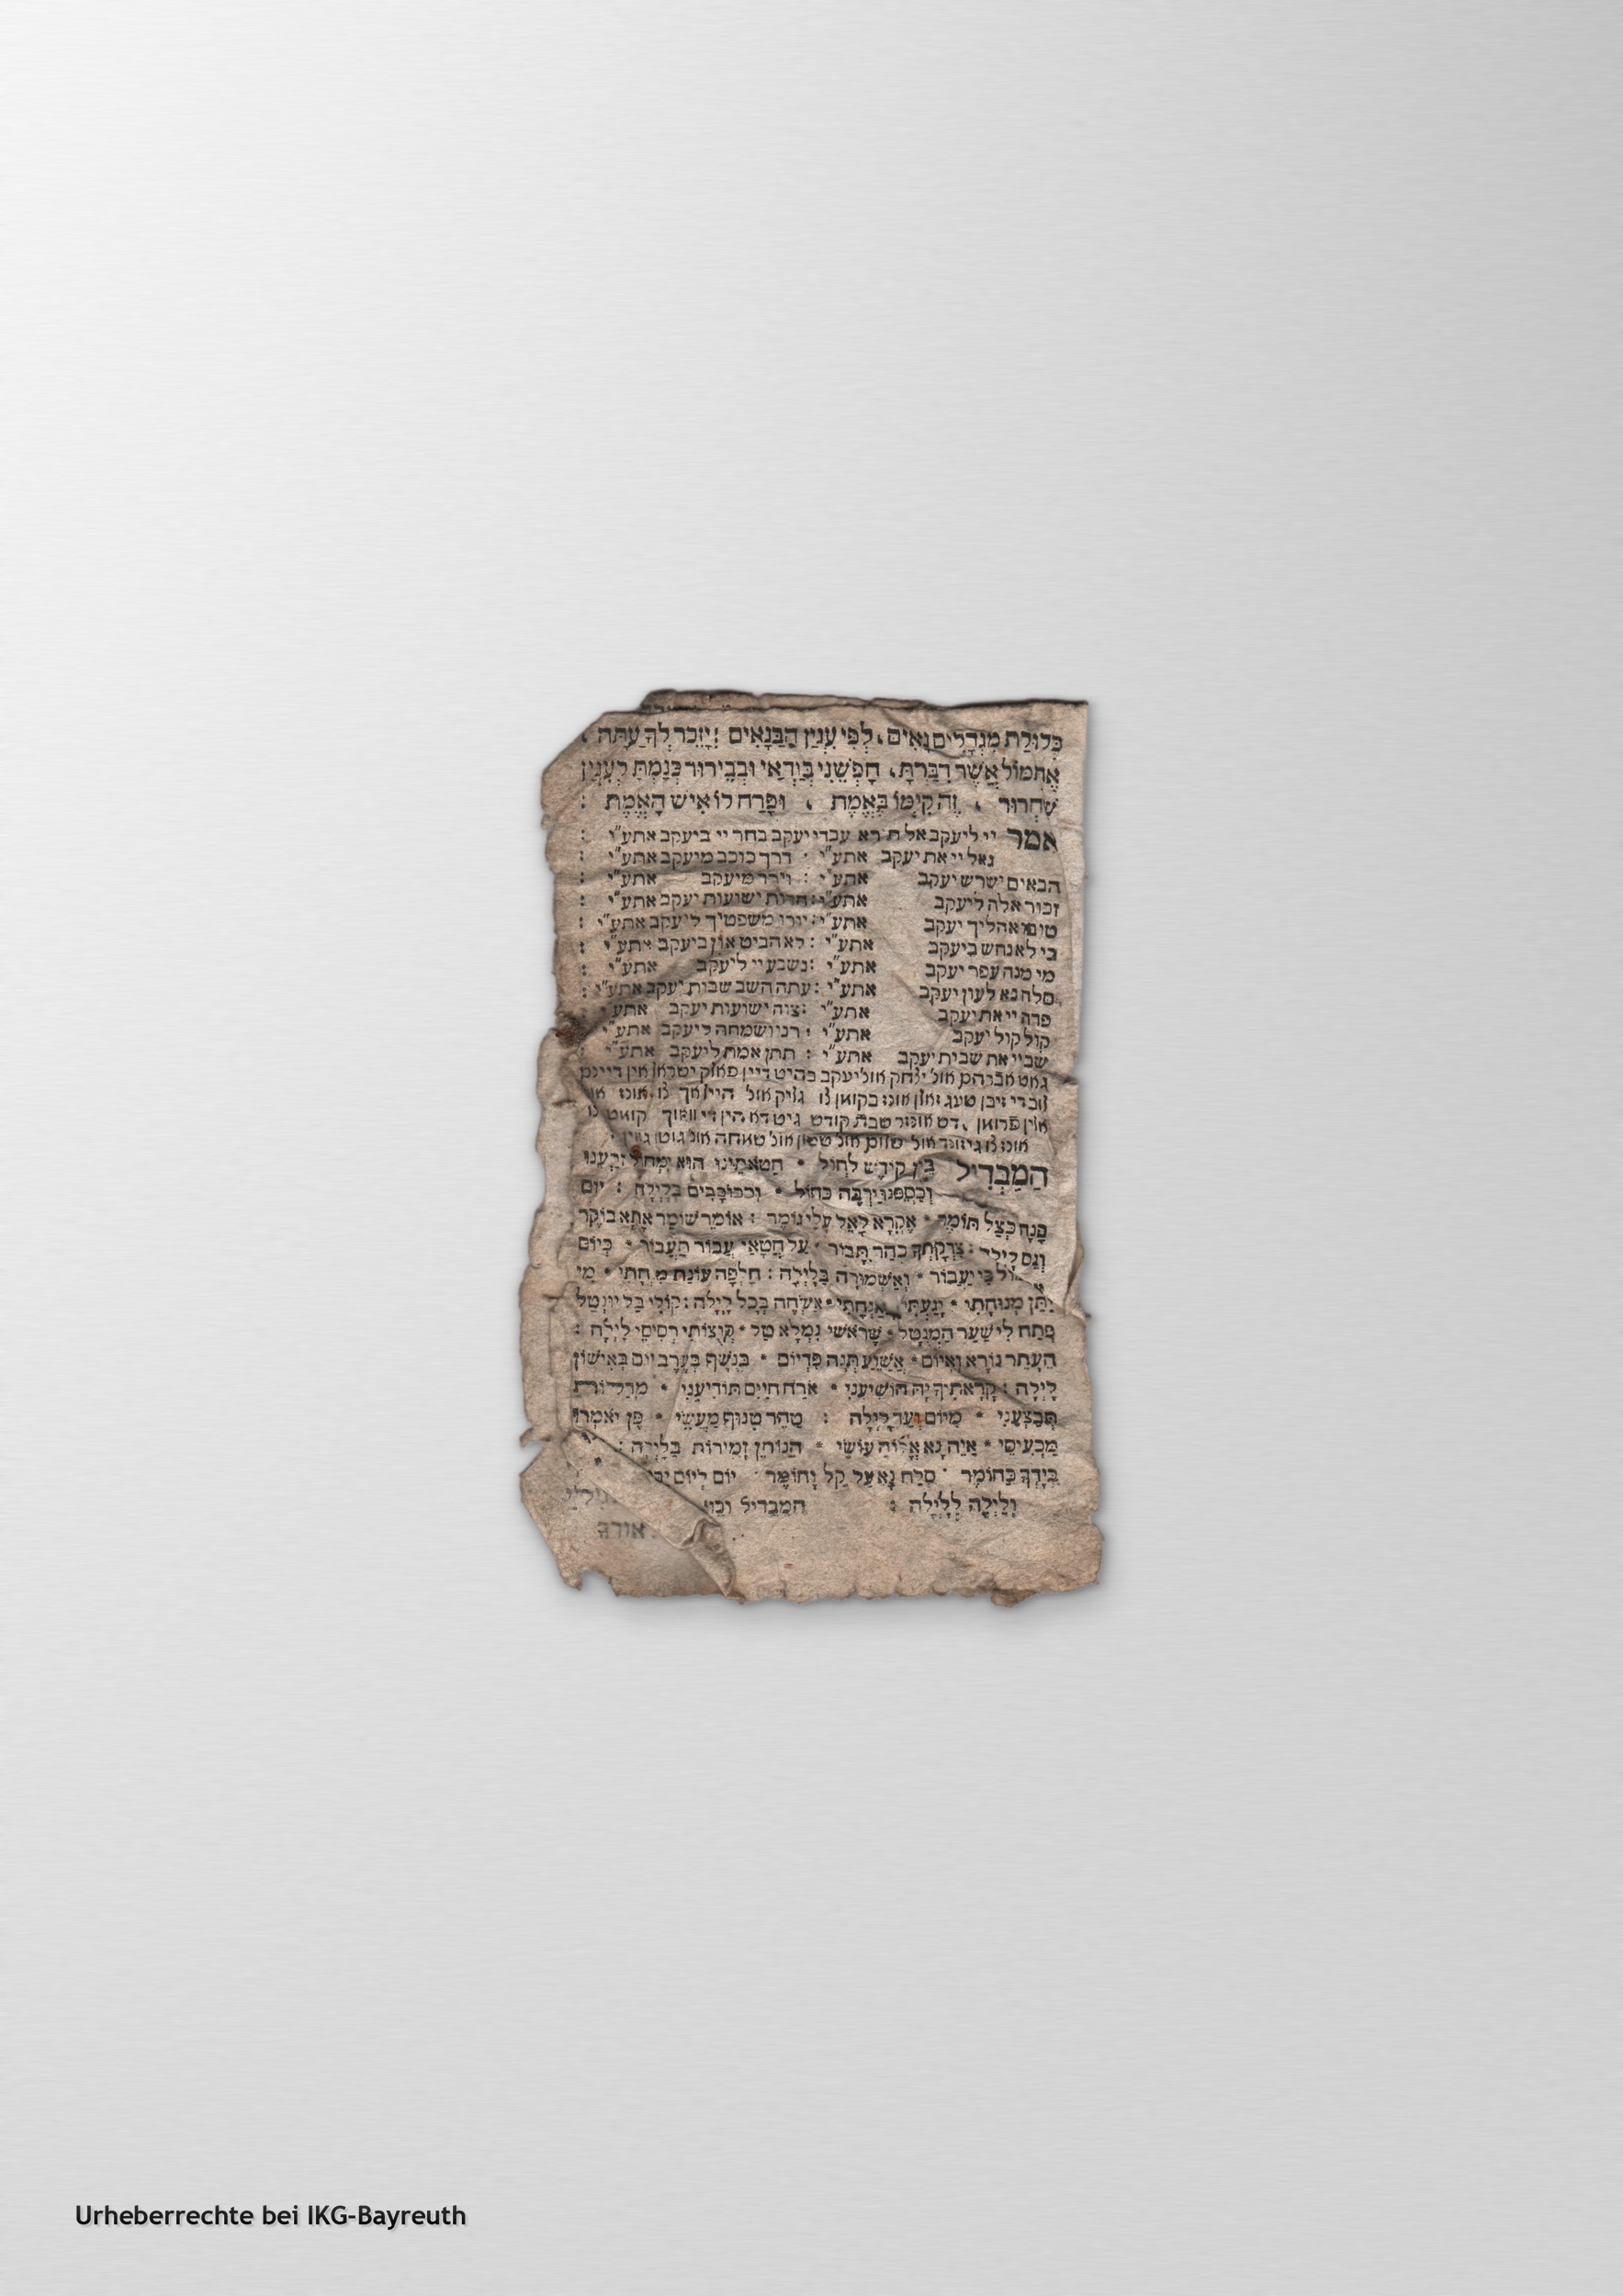 כְּלוּלַת מִגְדָּלִים נָאִים, לְפִי עִנְיַן הַבַּנָאִים! יִזָּכֵר לְךָ עַתָּה,
אֶתְמוֹל אֲשֶׁר דִּבַּרְתָּ, חָפְשֵׁנִי בְּוַדַאי וּבְבֵירוּר כְּנַמְתָּ לְעִנְיַן
שִׁחְרוּר, זֶה קִיְּמוֹ בֶּאֱמֶת, וּפָּרַח לוֹ אִישׁ הָאֱמֶת :
אמר יי ליעקב אל תירא עבדי יעקב בחר יי ביעקב אתע"י :
גאל יי את יעקב אתע"י · דרך כוכב מיעקב אתע"י :
הבאים ישרש יעקב אתע"י : וירד מיעקב אתע"י :
זכור אלה ליעקב אתע"י : חדות ישועות יעקב אתע"י :
טובו אהליך יעקב אתע"י : יורו משפטיך ליעקב אתע"י :
כי לא נחש ביעקב אתע"י : לא הביט און ביעקב אתע"י :
מי מנה עפר יעקב אתע"י : נשבע יי ליעקב אתע"י :
סלח נא לעון יעקב אתע"י : עתה השב שבות יעקב אתע"י :
פדה יי את יעקב אתע"י : צוה ישועות יעקב אתע"י :
קול קול יעקב אתע"י : רני ושמחה ליעקב אתע"י :
שב יי את שבית יעקב אתע"י : תתן אמת ליעקב אתע"י :
גאט אברהם אונ' יצחק אונ' יעקב בהיט דיין פאלק ישראל אין דיינם
לובדי זיבן טעג זאלן אונז בקואן
אלין פרואן דש אונזר שבת קודש גיט דא הין
אונ צו גיזונד אונ' שלום אונ' ששון אונ' שמחה אונ' גוטן
הַמַבְדִּיל בֵּין קוֹדֶשׁ לְחוֹל * חַטֹּאתֵינוּ הוּא יִמְחוֹל זַרְעֵנוּ
וְכַסְפֵּנוּ יַרְבֶּה כַּחוֹל * וְכַכּוֹכָבִים בַּלָּיְלָה : יוֹם
פָּנָה כְּצֵל תּוֹמֶר * אֶקְרָא לָאֵל עָלַי גּוֹמֵר : אוֹמֵר שׁוֹמֵר אָתָא בוֹקֶר
וְגַם לָיְלָה : צִדְקָתְךָ כְּהַר תָּבוֹר * עַל חֲטָאַי עֲבוֹר תַּעֲבוֹר * כְּיוֹם
כִּי יַעֲבוֹר * וְאַשְׁמוּרָה בַלָּיְלָה : חָלְפָה עוֹנַת מִנְחָתִי * מִי
יִתֵּן מְנוּחָתִי * יָגַעְתִּי בְּאַנְחָתִי * אַשְׂחֶה בְּכָל לָיְלָה : קוֹלִי בַּל יוּנְטַל
פְּתַח לִי שַׁעַר הַמְנֻטָּל * שֶׁרֹאשִׁי נִמְלָא טָל * קְוֻצּוֹתַי רְסִיסֵי לָיְלָה :
הֵעָתֵר נוֹרָא וְאָיוֹם * אֲשַׁוֵּעַ תְּנָה פִדְיוֹם * בְּנֶשֶׁף בְּעֶרֶב יוֹם בְּאִישׁוֹן
לָיְלָה : קְרָאתִיךָ יָהּ הוֹשִׁיעֵנִי * אֹרַח חַיִּים תּוֹדִיעֵנִי * מִדַּלּוּת
תְּבַצְּעֵנִי * מִיּוֹם וְעַד לָיְלָה : טַהֵר טִנּוּף מַעֲשַׂי * פֶּן יֹאמְרוּ
מַכְעִיסַי * אַיֵּה נָא אֱלוֹהַּ עוֹשָׂי * הַנּוֹתֵן זְמִירוֹת בַּלָּיְלָה :
בְּיָדְךָ כַּחוֹמֶר סְלַח נָא עַל קַל וָחוֹמֶר יוֹם לְיוֹם
וְלַיְלָה לְלָיְלָה : הַמַּבְדִּיל
אורך
Urheberrechte bei IKG-Bayreuth